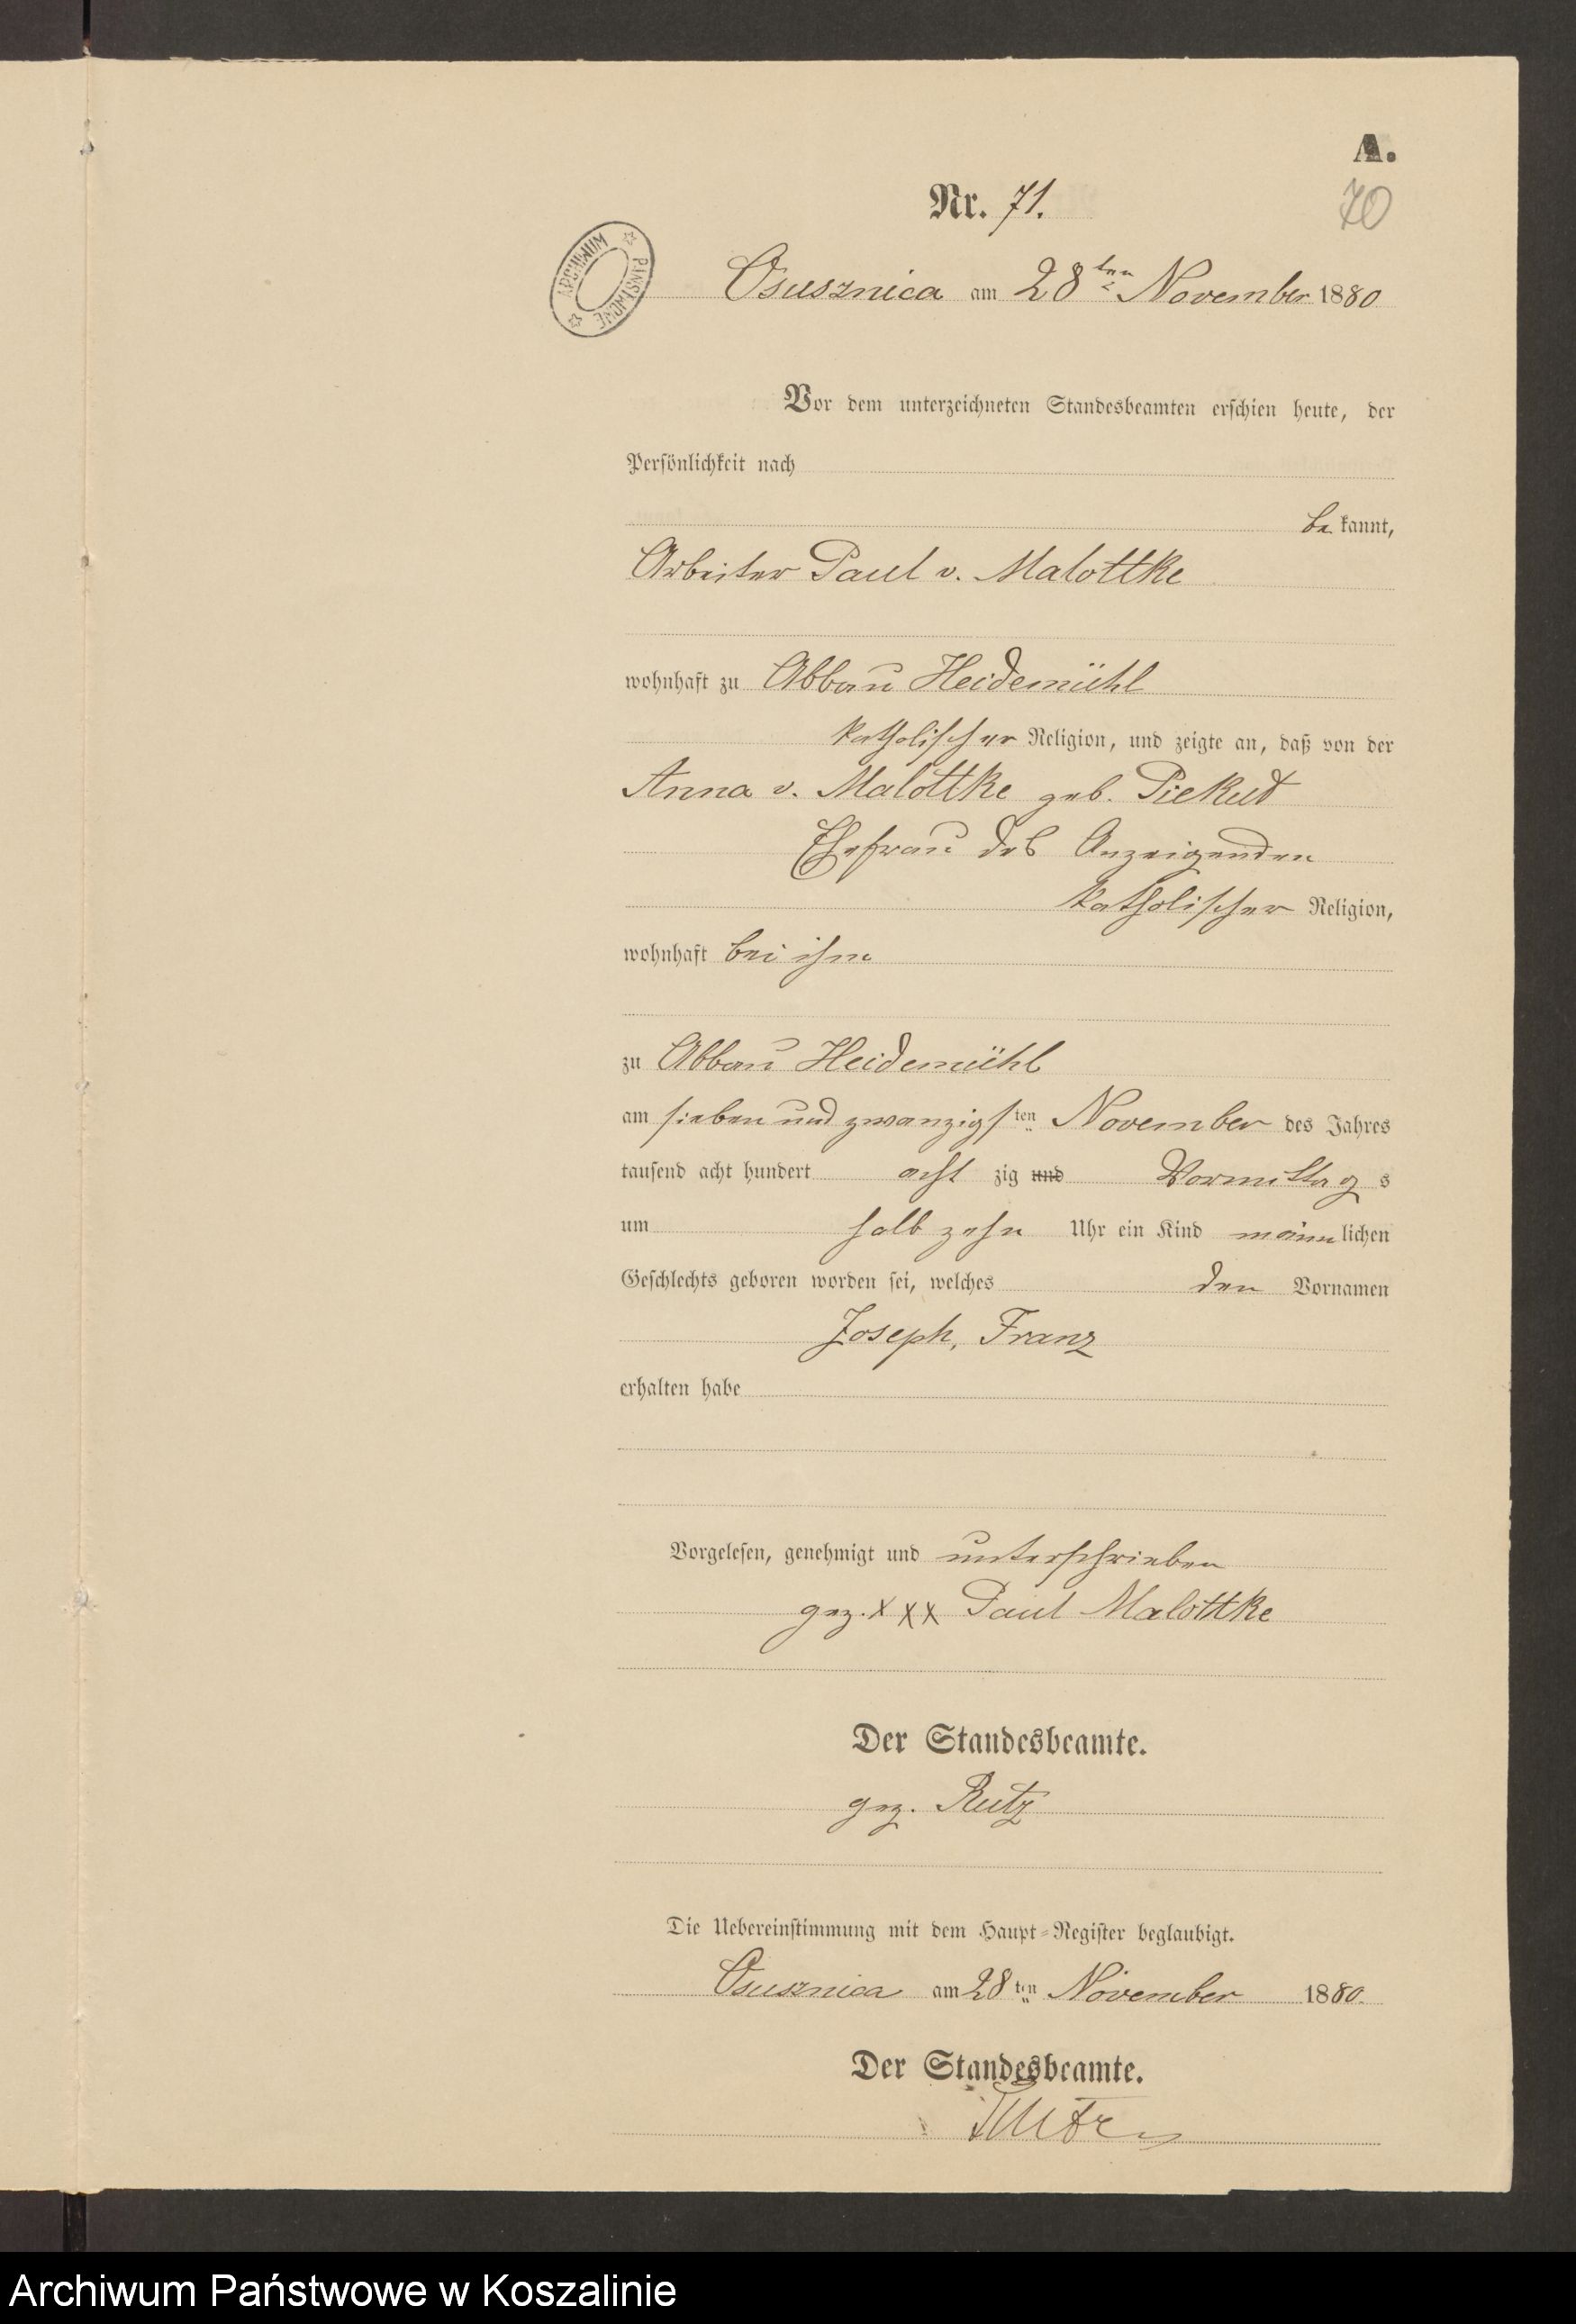 A.
Nr. 71.
70
ARCHIWUM PAŃSTWOWE
Osusznica am 28ten November 1880
Vor dem unterzeichneten Standesbeamten erschien heute, der
Persönlichkeit nach
be kannt,
Arbeiter Paul v. Malottke
wohnhaft zu Abbau Heidemühl
katholischer Religion, und zeigte an, daß von der
Anna v. Malottke geb. Piekut
Ehefrau des Anzeigenden
katholischer Religion,
wohnhaft bei ihm
zu Abbau Heidemühl
am sieben und zwanzigsten November des Jahres
tausend acht hundert acht zig und Vormittag s
um halb zehn Uhr ein Kind männlichen
Geschlechts geboren worden sei, welches den Vornamen
Joseph, Franz
erhalten habe
Vorgelesen, genehmigt und unterschrieben
gez. XXX Paul Malottke
Der Standesbeamte.
gez. Rutz
Die Uebereinstimmung mit dem Haupt-Register beglaubigt.
Osusznica am 28ten November 1880.
Der Standesbeamte.
Rutz
Archiwum Państwowe w Koszalinie